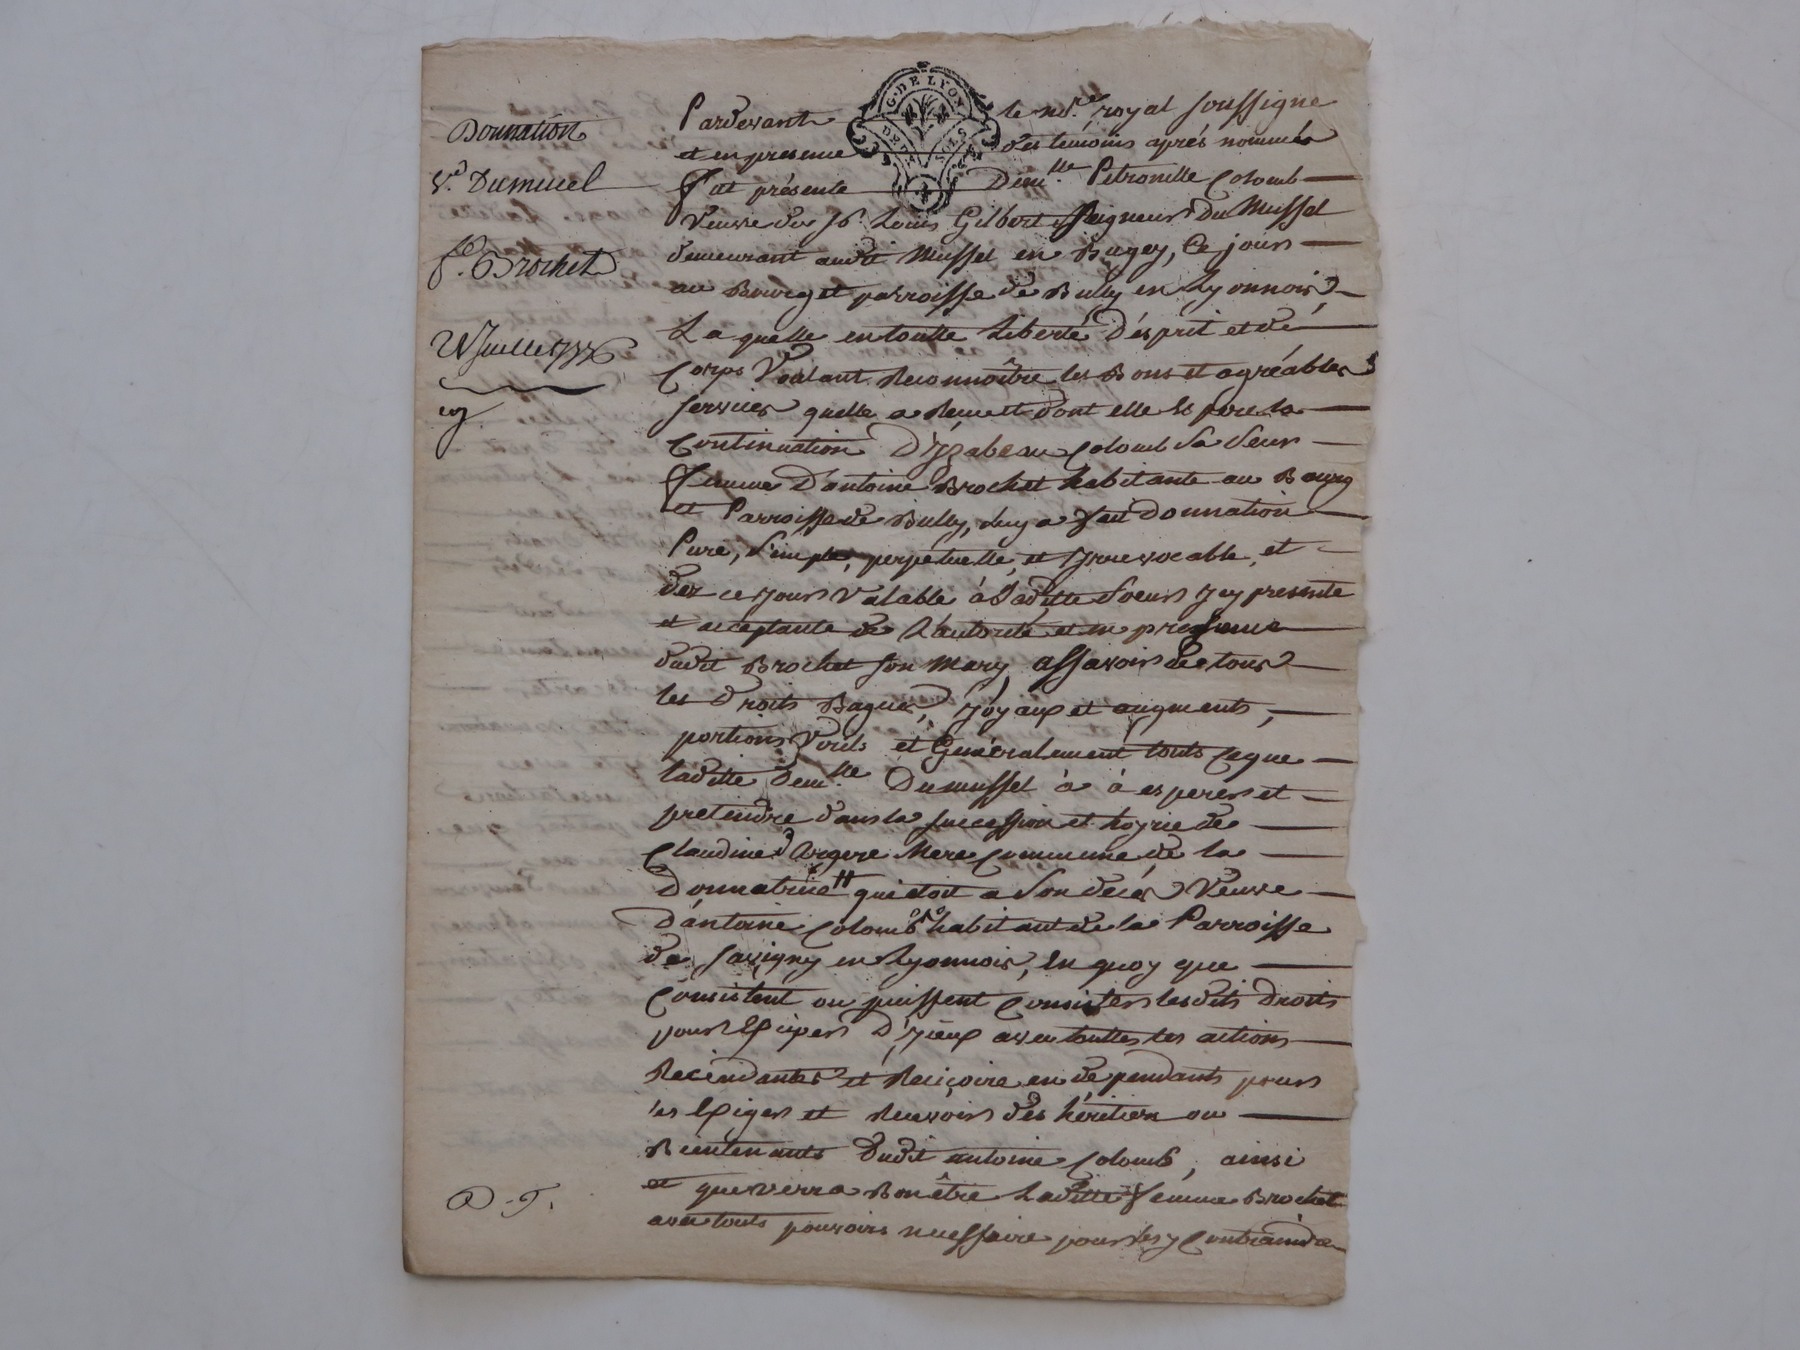 Donnation
V.e Dumucel
f.e Brochet
Juillet
G. DE LYON
DE
Pardevant le no.re royal soussigne
et en presence des temoins aprés nommés
fut présente Dem.lle Petronille Colomb
Veuve du Sr. Louis Gilbert Seigneur Du Mussel
demeurant audit Mussel en Bugey, Ce jour
au Bourg et parroisse de Bully en Lyonnois
Laquelle en toutte Liberté d'ésprit et de
Corps Voulant Reconnoître les Bons et agréables
services quelle a Receu et dont elle Espere la
Continuation D'Izabeau Colomb Sa Seur
femme D'antoine Brochet habitante au Bourg
et Parroisse de Bully, Luy a fait donnation
Pure, Simple, perpétuelle, et Yrrevocable, et
dez ce Jour Valable à Laditte Soeur Icy presente
et acceptante de L'autorité et en presence
dudit Brochet son Mary, assavoir de tous
les Droits Bagues, Joyaux et augments,
portions Virils et Généralement touts Ceque
laditte Dem.lle Dumussel à à esperer et
pretendre dans la succession et hoyrie de
Claudine Mere Commune de la
Donnatrice qui étoit a Son décés Veuve
D'antoine Colomb habitant de la Parroisse
de Savigny en Lyonnois, En quoy que
Consistent ou puissent Consister lesdits Droits
pour D'Iceux avec touttes les actions
et en dependants pour
les Exiger et Recevoir des héritiers ou
Bientenants Dudit antoine Colomb, ainsi
et que verra Bon être Laditte femme Brochet
avec touts pouvoirs necessaire pour les y Contraindre